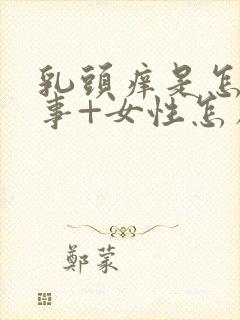 乳頭痒是怎
事+女性怎
鄭蒙